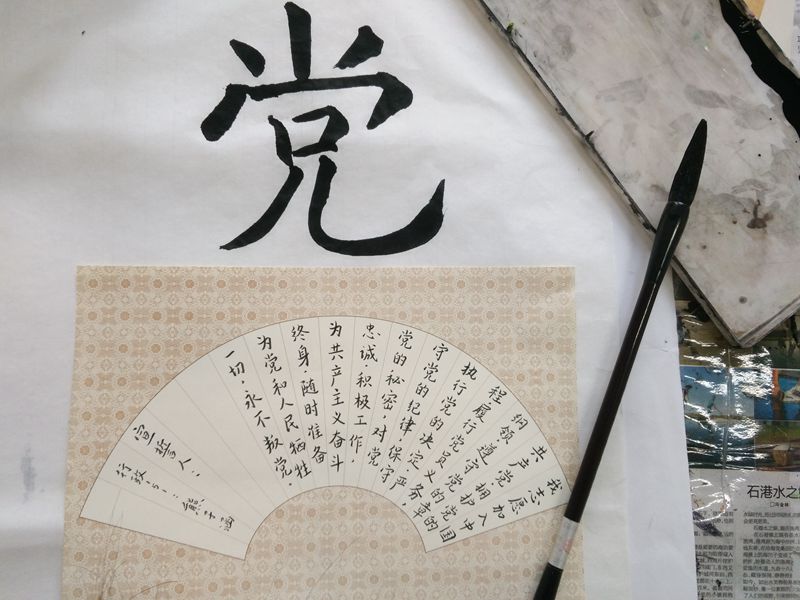 党
我志愿加入中国
共产党,拥护党的
纲领,遵守党的章
程,履行党员义务,
执行党的决定,严
守党的纪律,保守
党的秘密,对党
忠诚,积极工作,
为共产主义奋斗
终身,随时准备
为党和人民牺牲
一切,永不叛党。
宣誓人:
石港水之